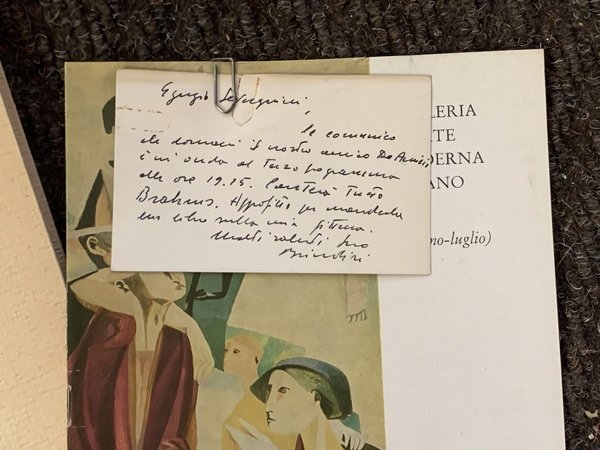 Egregio Severgnini,
le comunico
che domani il nostro amico De Amicis
è in onda al terzo programma
alle ore 19.15. Canterà tutto
Brahms. Approfitto per mandarle
un libro sulla mia pittura.
Molti saluti suo
Brindisi
LERIA
TE
DERNA
ANO
no-luglio)